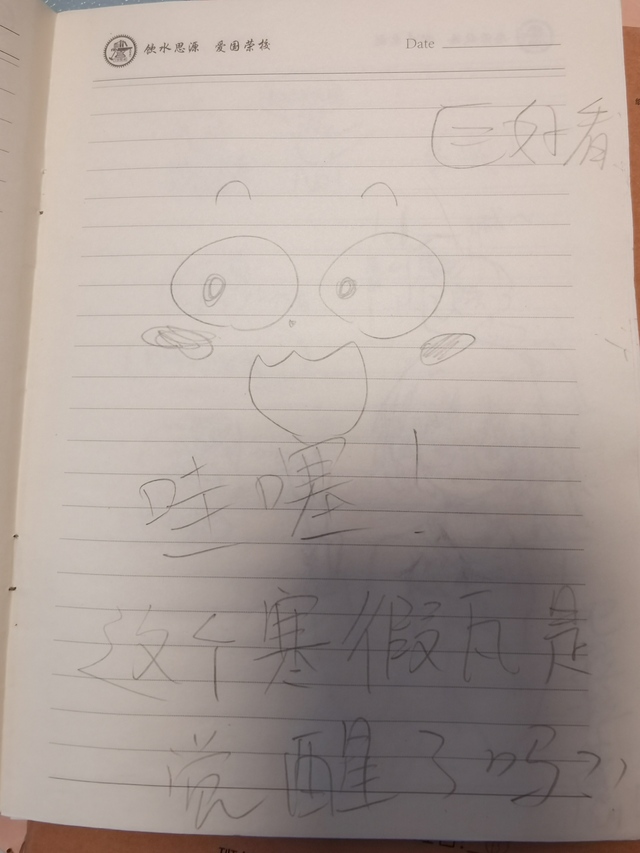 饮水思源 爱国荣校 Date
好看
哇噻！
这个寒假瓦是
觉醒了吗？